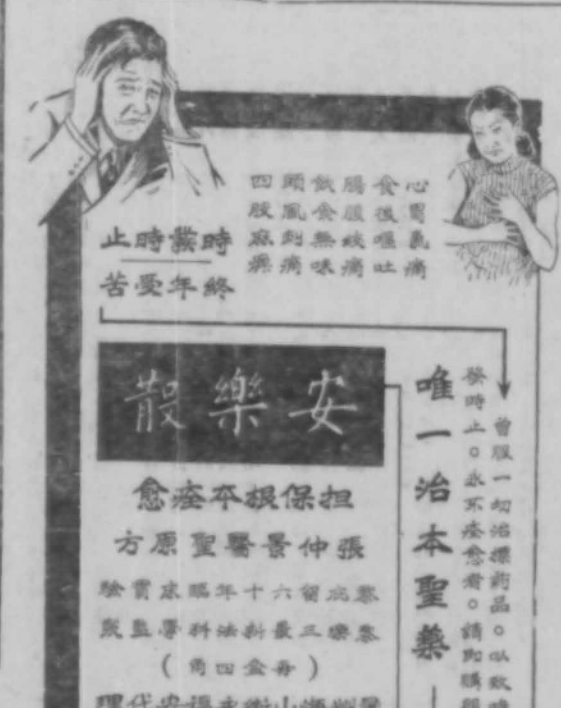 心胃氣痛
食後嘔吐
腸腹絞痛
飲食無味
頭風刺痛
四肢麻痹
時發時止
終年受苦
曾服一切治標药品。以致時
發時止。永不痊愈者。請即購服
唯一治本聖藥
安樂散
担保根本痊愈
張仲景醫聖原方
六十年臨床實驗
樂三最新法科學監製
（每盒四角）